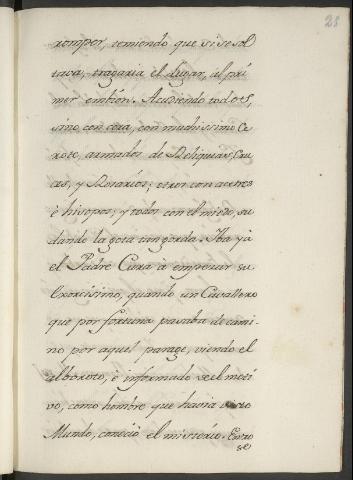 28
romper, temiendo que si se sol
tava, tragaria el Lugar, al pri
mer embion. Acudieron todos,
sino con cera, con muchissimo Ce
rote, armados de Reliquias, Cru
ces, y Rosarios; otros con acetres
è hisopos; y todos con el miedo, su
dando la gota tan gorda. Iba yà
el Padre Cura à empezar su
Exorcissmo, quando un Cavallero
que por fortuna pasaba de cami
no por aquel parage, viendo el
alboroto, è informado de el moti
vo, como hombre que havia visto
Mundo, conociò el misterio. Entro
se